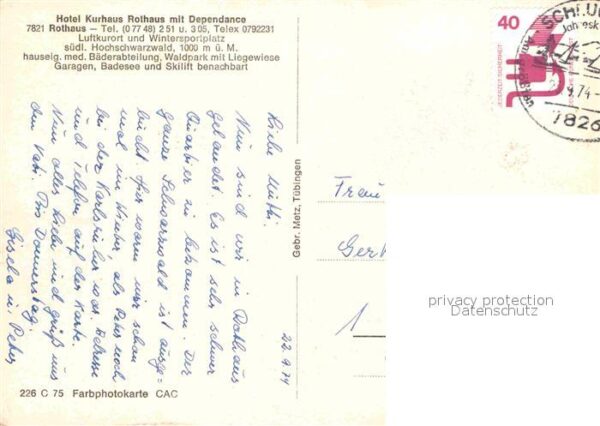 Hotel Kurhaus Rothaus mit Dependance
7821 Rothaus — Tel. (0 77 48) 2 51 u. 3 05, Telex 0792231
Luftkurort und Wintersportplatz
südl. Hochschwarzwald, 1000 m ü. M.
hauseig. med. Bäderabteilung, Waldpark mit Liegewiese
Garagen, Badesee und Skilift benachbart
22.9.74
Liebe Mutti.
Nun sind wir in Rothaus
gelandet. Es ist sehr schwer
Quartier zu bekommen. Der
ganze Schwarzwald ist ausge-
bucht. Hier waren wir schon
mal im Winter, als Peter noch
bei der Karlsruher war. Adresse
und Telefon auf der Karte.
Nun alles Liebe und grüß uns
den Vati. Bis Donnerstag.
Gisela u. Peter
Gebr. Metz, Tübingen
226 C 75 Farbphotokarte CAC
40
JEDERZEIT SICHERHEIT
SCHLUCH
9.74
7826
Frau
Ger
1
privacy protection
Datenschutz